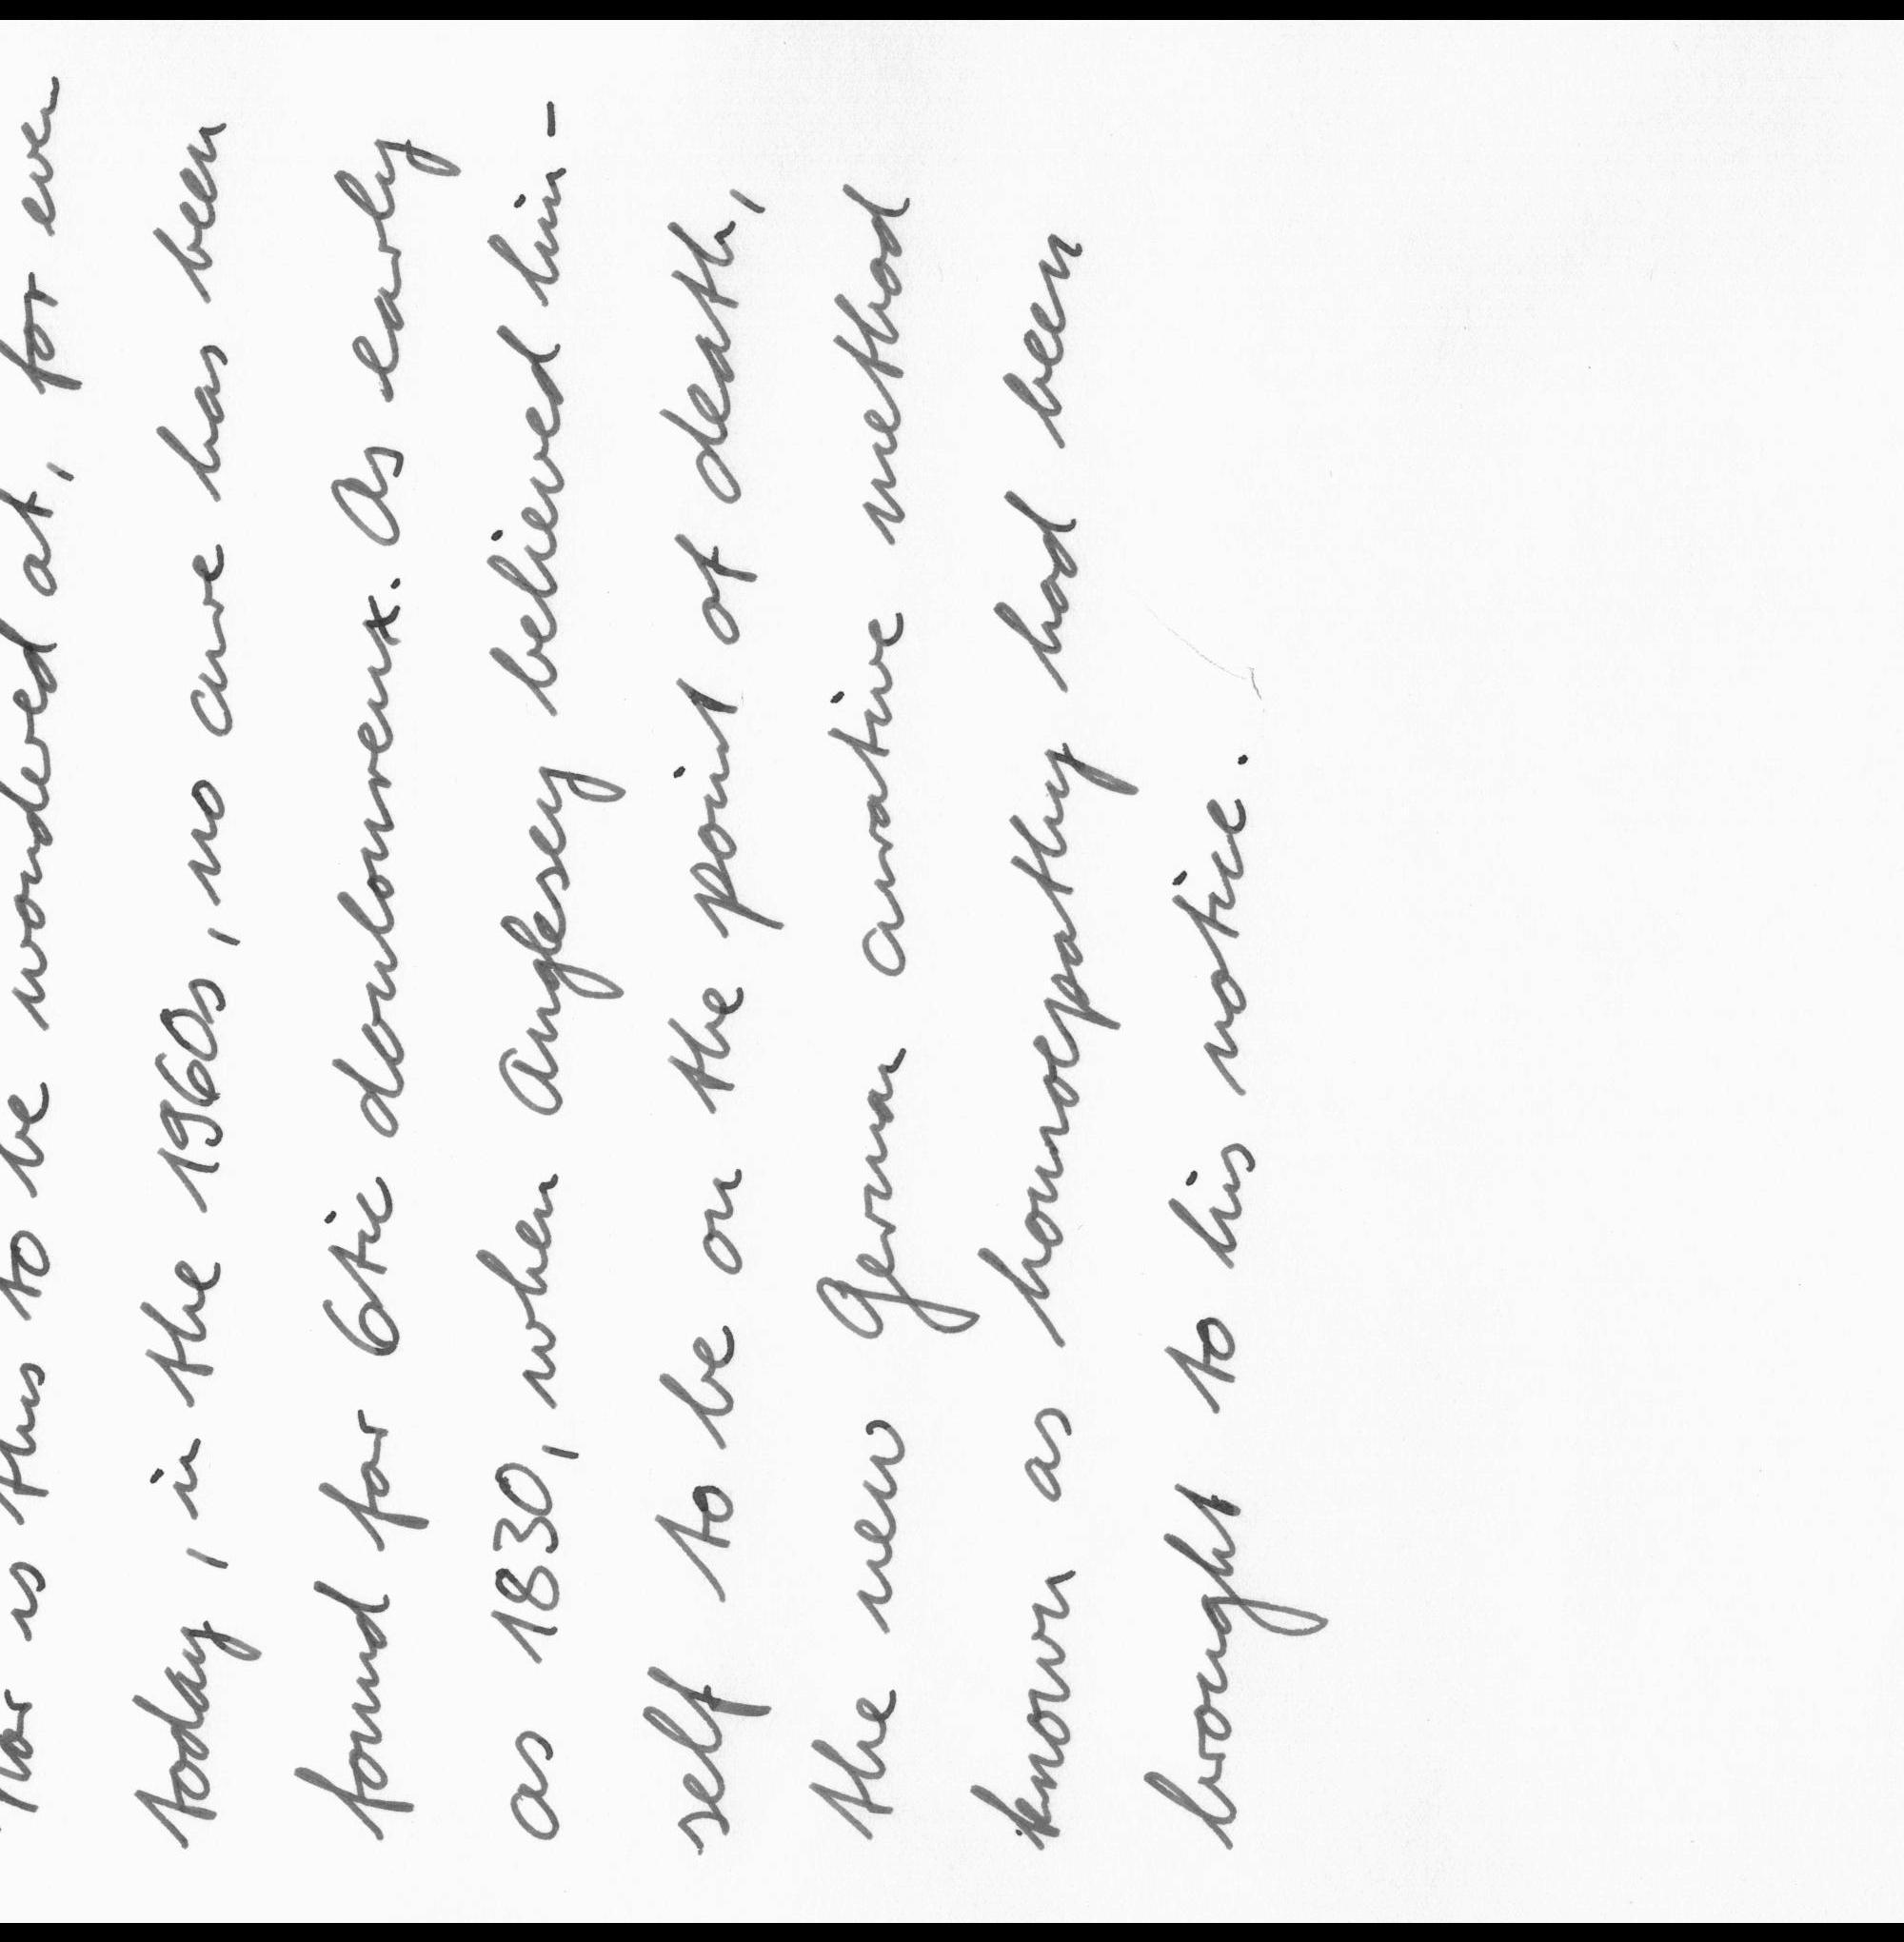 Nor is this to be wondered at, for even
today, in the 1960s, no cure has been
found for 6tic doulourenx. As early
as 1830, when Anglesey believed him-
self to be on the point of death,
the new German curative method
known as homoepathy had been
brought to his notice.